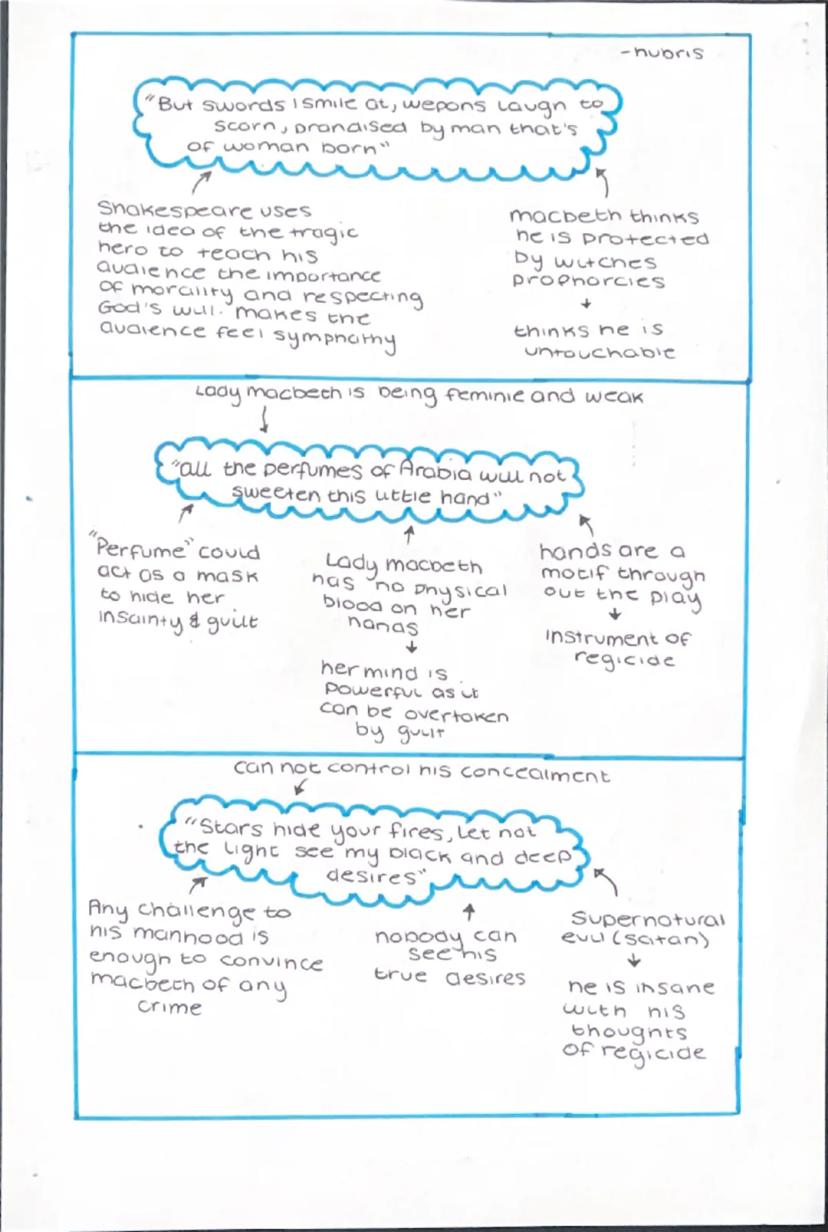 -hubris
"But swords I smile at, wepons laugh to
scorn, brandised by man that's
of woman born"
Shakespeare uses
the idea of the tragic
hero to teach his
audience the importance
of morality and respecting
God's will. makes the
audience feel symphathy
macbeth thinks
he is protected
by witches
prophorcies
↓
thinks he is
untouchable
Lady macbeth is being feminie and weak
"all the perfumes of Arabia will not
sweeten this little hand"
"Perfume" could
act as a mask
to hide her
insainty & guilt
Lady macbeth
has no physical
blood on her
hands
↓
her mind is
powerful as it
can be overtaken
by guilt
hands are a
motif through
out the play
↓
instrument of
regicide
can not control his concealment
"Stars hide your fires, let not
the light see my black and deep
desires"
Any challenge to
his manhood is
enough to convince
macbeth of any
crime
nobody can
see his
true desires
Supernatural
evil (satan)
↓
he is insane
with his
thoughts
of regicide